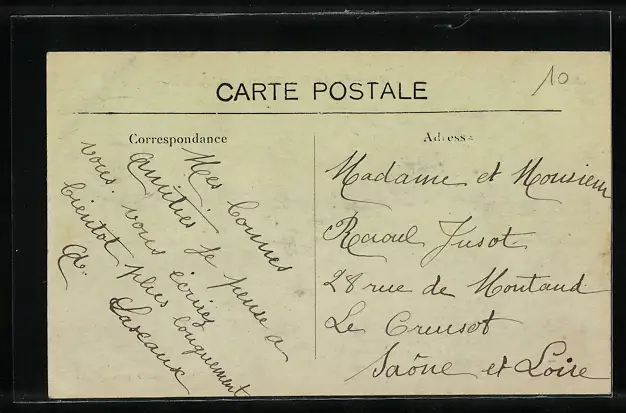 10
CARTE POSTALE
Correspondance
Mes bonnes
Amitiés. Je pense a
vous. vous écrirez
bientôt plus longuement
A. Laseaux
Adresse
Madame et Monsieur
Raoul Jusot
28 rue de Montaud
Le Creusot
Saône et Loire